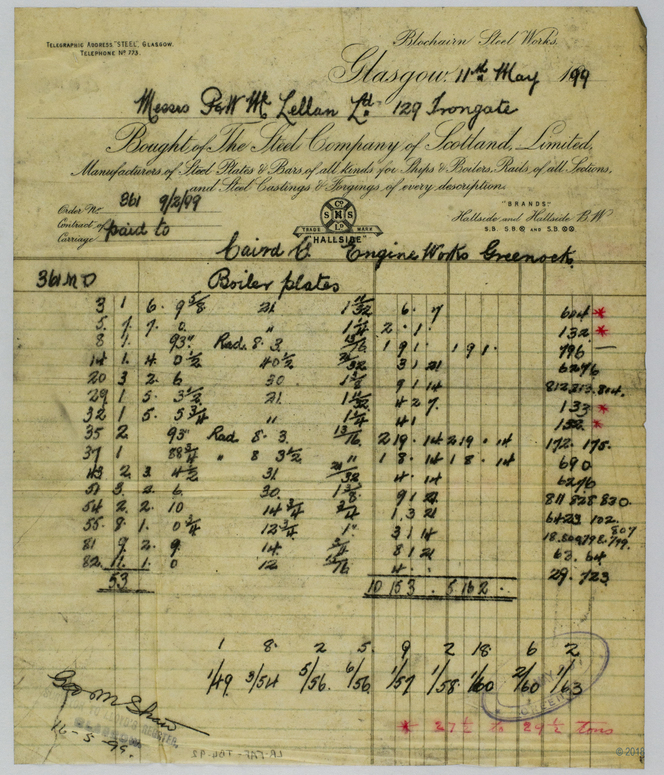 TELEGRAPHIC ADDRESS "STEEL", GLASGOW.
TELEPHONE No 773.
Blochairn Steel Works.
Glasgow, 11th May 1899
Messrs P&W McLellan Ltd. 129 Trongate
Bought of The Steel Company of Scotland, Limited,
Manufacturers of Steel Plates & Bars of all kinds for Ships & Boilers, Rails of all Sections,
and Steel Castings & Forgings of every description.
Order No 361 9/2/99
Contract of paid to
Carriage
Co
S N S
Lo
TRADE MARK
"HALLSIDE"
"BRANDS"
Hallside and Hallside B.W
Caird & Co. Engine Works Greenock
361 MO Boiler plates
3 1 6. 9 5/8 21 6. 7 604 *
5. 7. 7. 0. " 2. 1. 132 *
8 1. 93" Rad. 8. 3. 13/16 1 9 1. 1 9 1. 796 —
14 1. 4 0 1/2 40 1/2 3 21 6276
20 3 2. 6 30 9 14 812.813.814.
29 1 5. 3 1/2 21. 4 2 7. 133 *
32 1 5. 5 3/4 " 1 1/4 4 1 132 *
35 2. 93" Rad. 8. 3 13/16 2 19. 14 2 19. 14 172. 175.
37 1 88 3/4 " 8 3 1/2 " 1 8. 14 1 8. 14 690
43 2 3. 4 1/2 31. 4. 14 6276
51 3. 2. 6. 30. 9 1 21 811 828 830.
54 2. 2. 10 14 3/4 3/4 1. 3 21 6423 102.
55 8. 1. 0 3/4 12 3/4 1" 3 1 14 18.809.798.799. 807
81 9 2. 9. 14 3/4 8 1 21 63. 64
82. 11. 1. 0 12 13/16 4. 29. 723
53 10 15 3. 5 16 2.
1 8. 2 5. 9 2 18 6 2
1/49 3/54 5/56. 6/56. 1/57 1/58 1/60 2/60 1/63
Geo M Shaw
16-5-99.
* 27 1/2 to 29 1/2 tons
© 2018